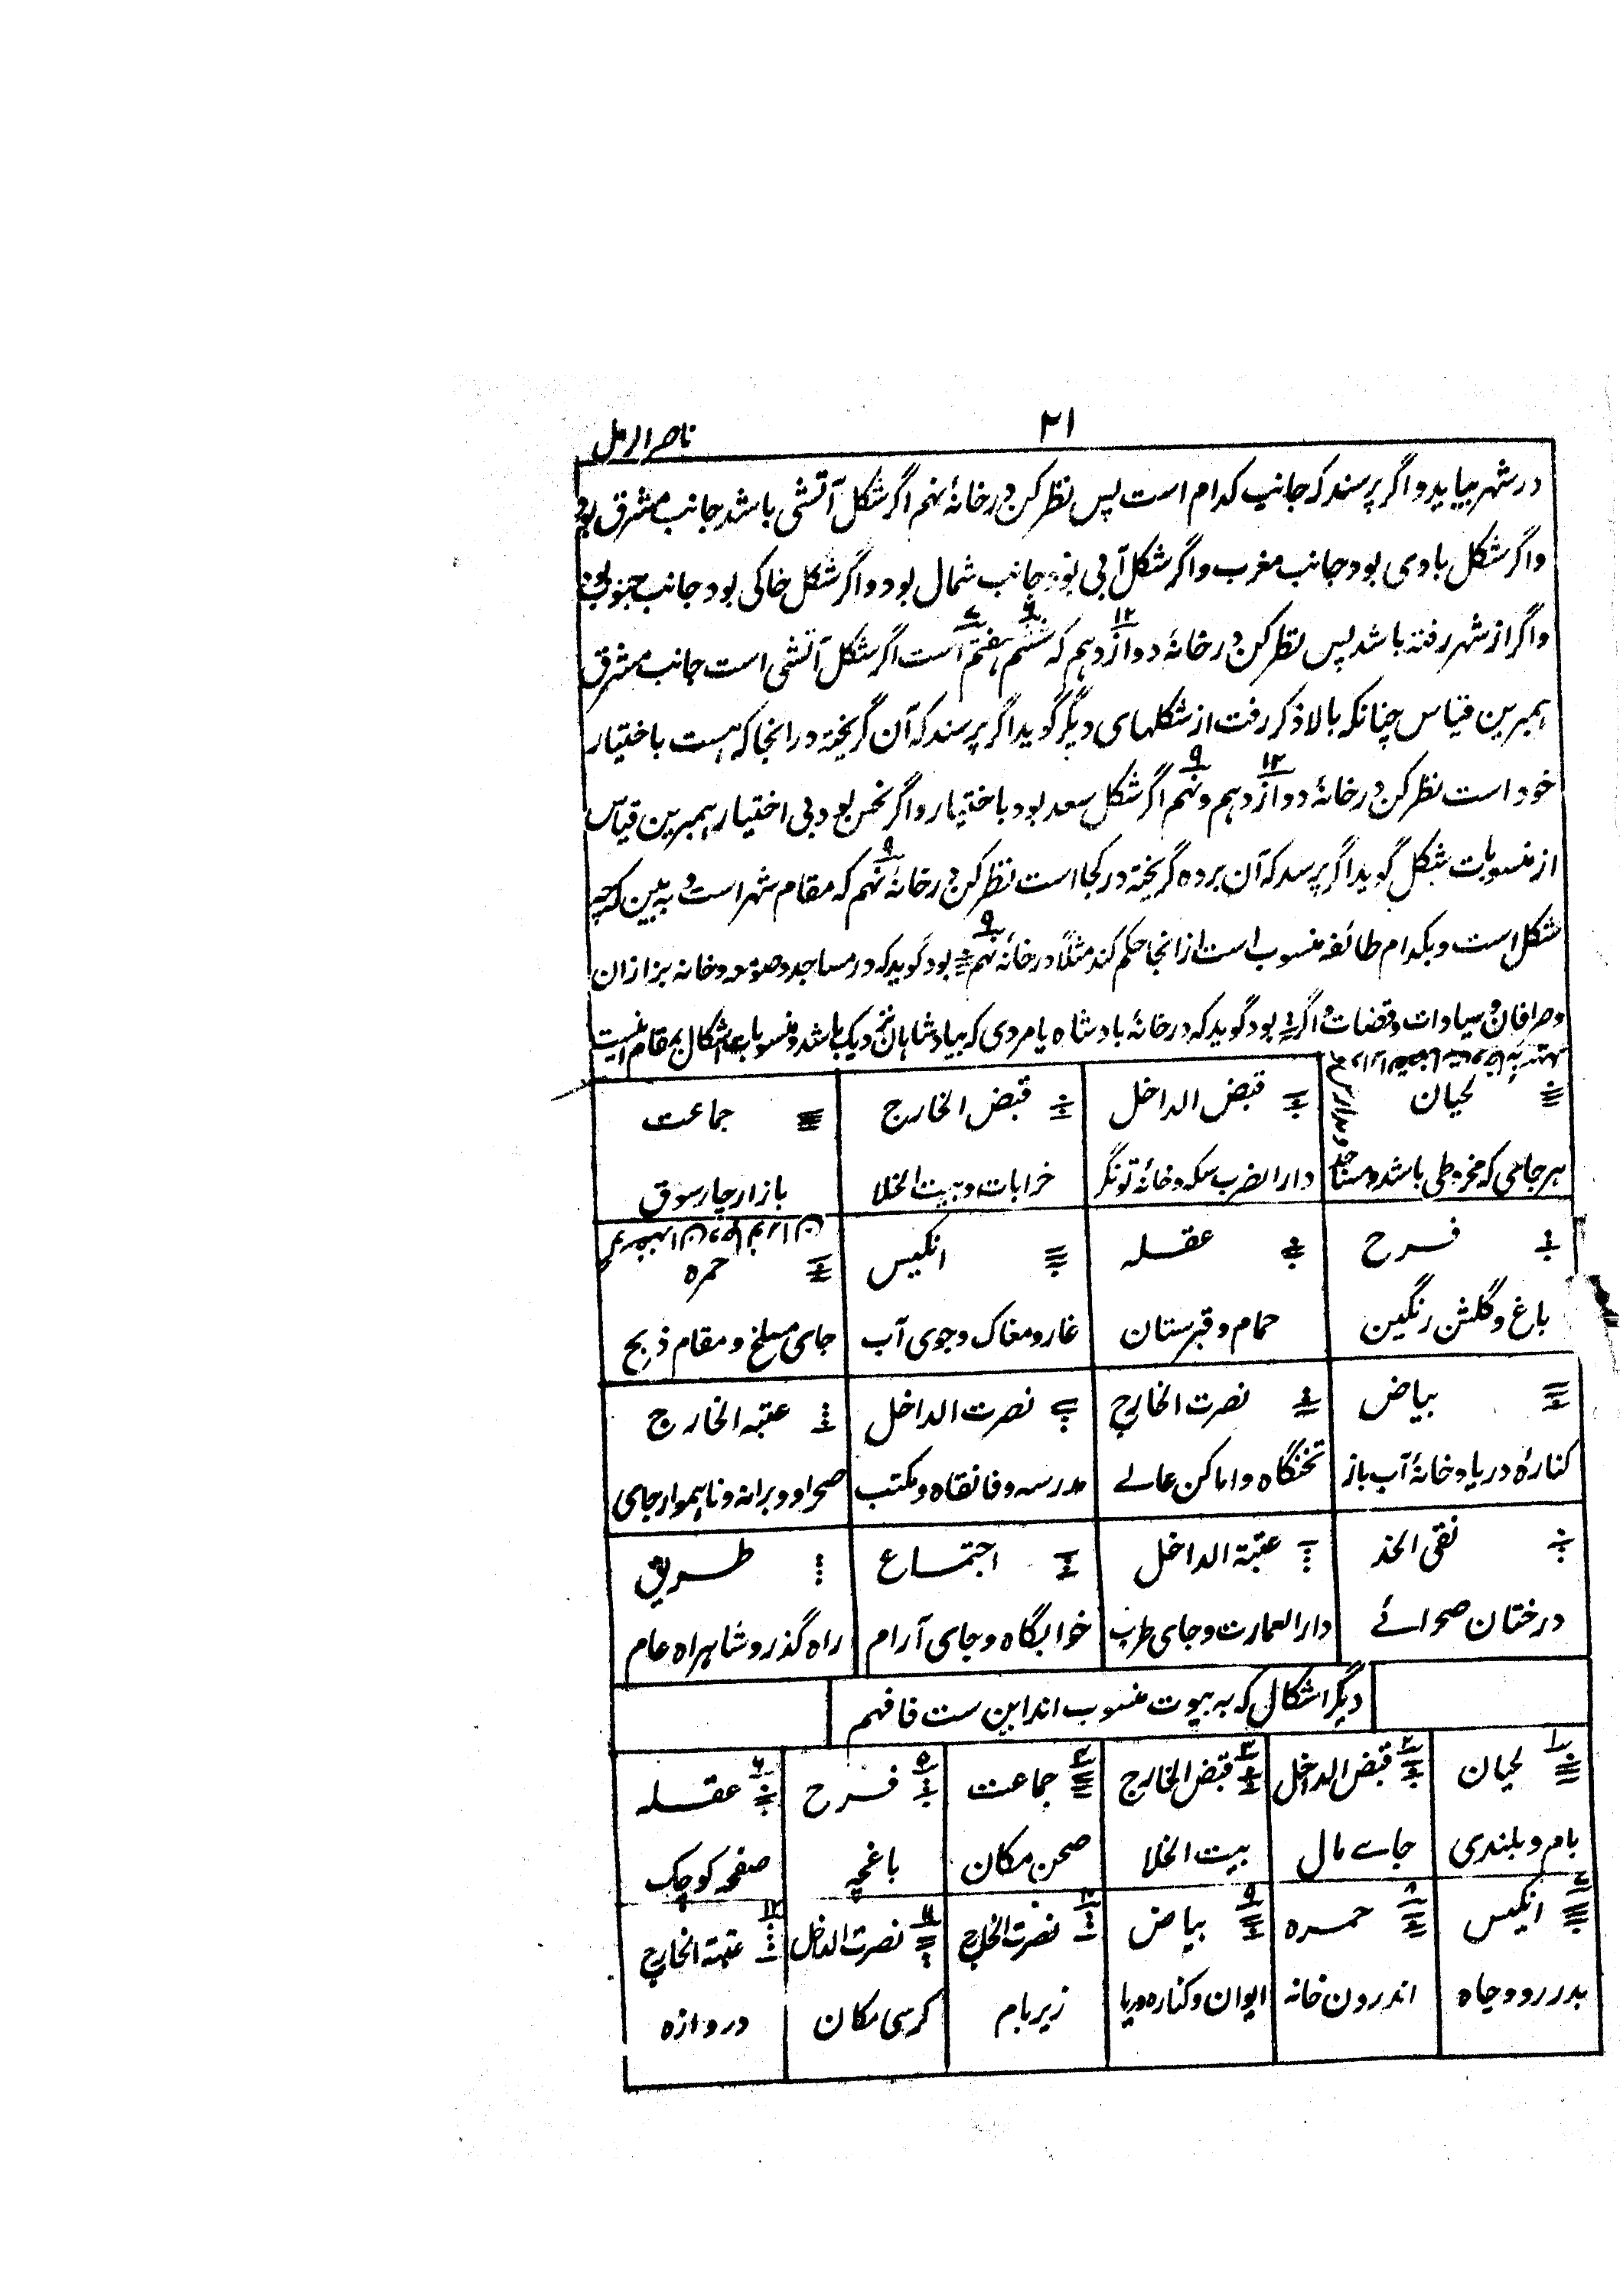 ۲۱
ناصر الرمل
در شهر بیاید و اگر پرسند که جانب کدام است پس نظر کن در خانهٔ نهم اگر شکل آتشی باشد جانب مشرق بود
واگر شکل بادی بود جانب مغرب واگر شکل آبی بود جانب شمال بود واگر شکل خاکی بود جانب جنوب
واگر از شهر رفته باشد پس نظر کن در خانهٔ دوازدهم که ششم هفتم است اگر شکل آتشی است جانب مشرق
همبرین قیاس چنانکه بالا ذکر رفت از شکلهای دیگر گوید اگر پرسند که آن گریخته در انجا که هست باختیار
خود است نظر کن در خانهٔ دوازدهم و نهم اگر شکل سعد بود باختیار واگر نحس بود بی اختیار همبرین قیاس
از منسوبات شکل گوید اگر پرسد که آن برده گریخته در کجا است نظر کن در خانهٔ نهم که مقام شهر است و به بین که چه
شکل است و بکدام طائفه منسوب است از انجا حکم کند مثلاً در خانهٔ نهم بود گوید که در مساجد و صومعه و خانه بزازان
و صرافان و سیادات و قضات و اگر بود گوید که در خانهٔ بادشاه یا مردی که ببادشاهان نزدیک باشد و منسوبات اشکال بمقام اینست
لحیان قبض الداخل قبض الخارج جماعت
هر جای که مخروطی باشد دار الضرب سکه و خانهٔ تونگر خرابات و بیت الخلا بازار چارسوق
فرح عقله انکیس حمره
باغ و گلشن رنگین حمام و قبرستان غار و مغاک و جوی آب جای مسلخ و مقام ذبح
بیاض نصرت الخارج نصرت الداخل عتبه الخارج
کنارهٔ دریا و خانهٔ آب باز تختگاه و اماکن عالے مدرسه و خانقاه و مکتب صحرا و ویرانه و ناهموار جای
نقی الخد عتبة الداخل اجتماع طریق
درختان صحرائے دار العمارت و جای طرب خوابگاه و جای آرام راه گذر و شاهراه عام
دیگر اشکال که به بیوت منسوب اند این ست فافهم
۱ لحیان ۲ قبض الداخل ۳ قبض الخارج ۴ جماعت ۵ فرح ۶ عقله
بام و بلندی جاے مال بیت الخلا صحن مکان باغچه صفحه کوچک
۷ انکیس ۸ حمره ۹ بیاض ۱۰ نصرت الخارج ۱۱ نصرت الداخل ۱۲ عتبة الخارج
بدر رو و چاه اندرون خانه ایوان و کناره دریا زیر بام کرسی مکان دروازه